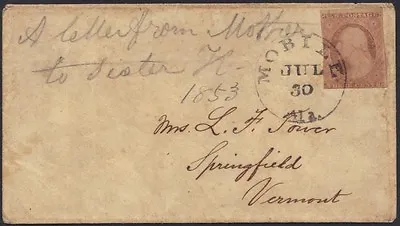 A letter from Mother
to Sister H.
1853
MOBILE
JUL
30
Ala.
Mrs. L. F. Tower
Springfield
Vermont